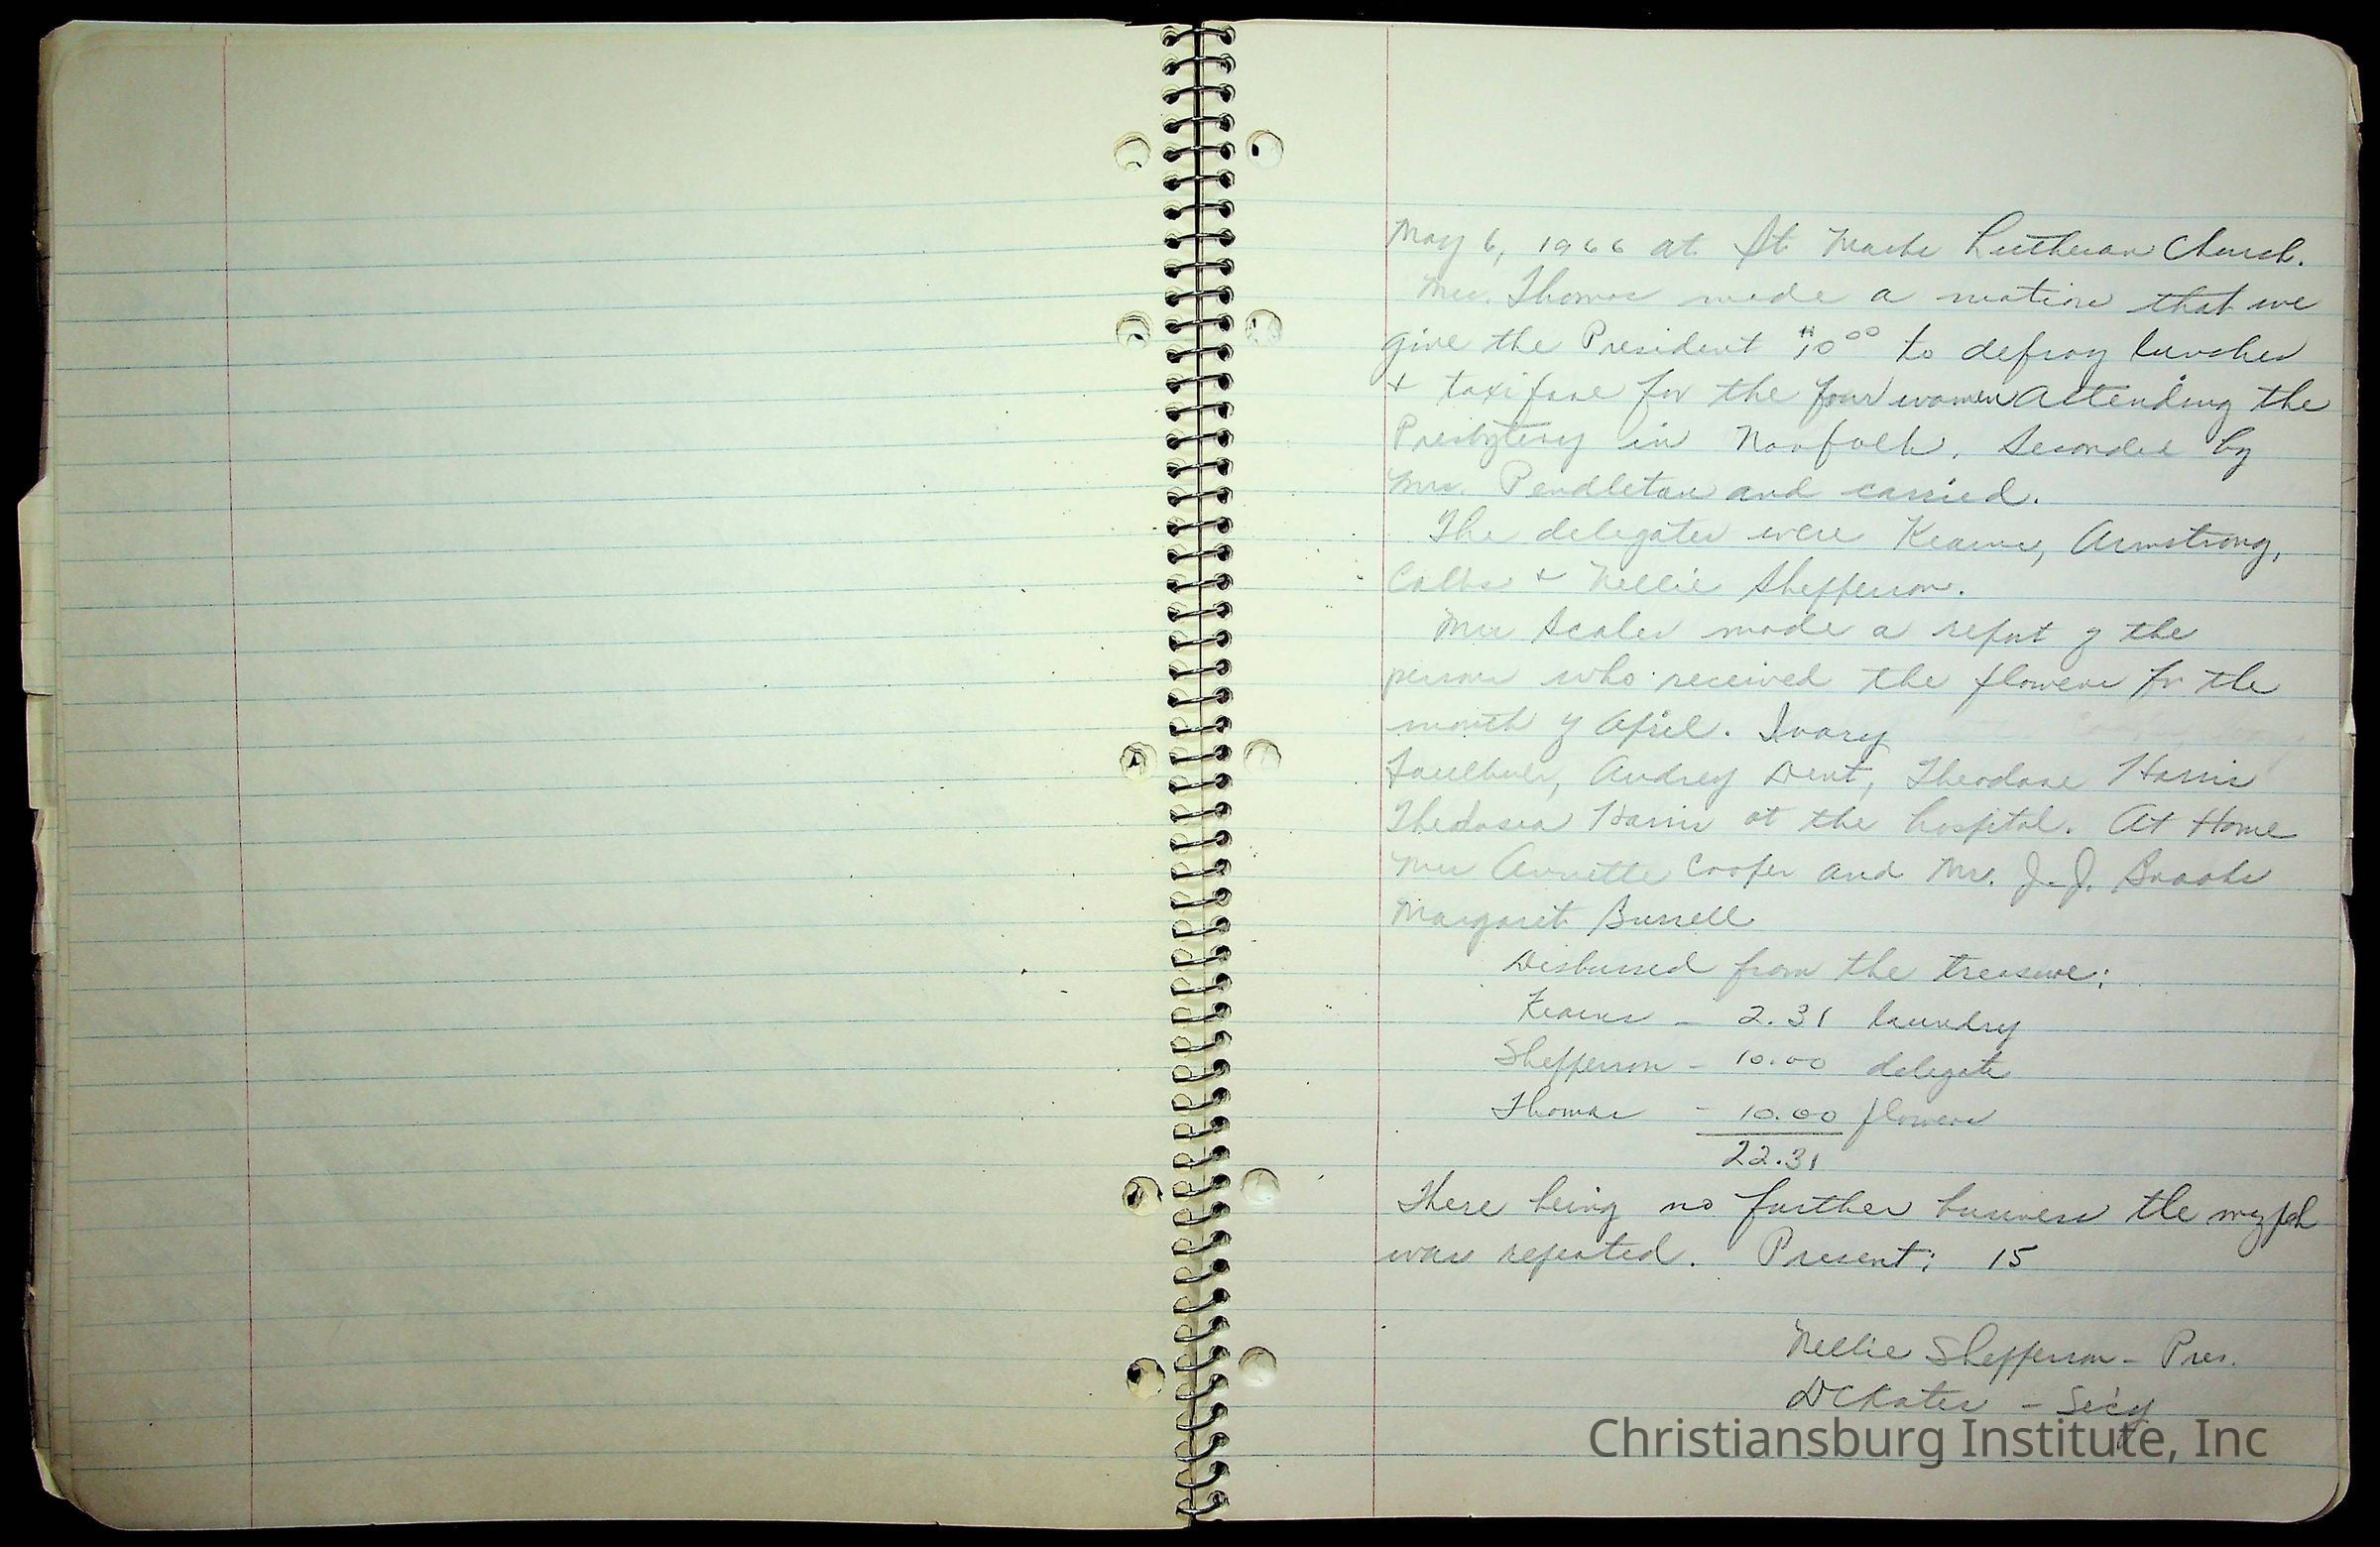 May 6, 1966 at St. Marks Lutheran Church.
Mrs. Thomas made a motion that we
give the President $10.00 to defray lunches
& taxi fare for the four women attending the
Presbytery in Norfolk. Seconded by
Mrs. Pendleton and carried.
The delegates were Kearns, Armstrong,
& Nellie Shefferson.
Mrs Scales made a report of the
persons who received the flowers for the
month of April. Ivory
Audrey Dent, Theodore Harris
Harris at the hospital. At Home
Mrs Annette Cooper and Mr. J.J. Brooks
Margaret Burrell
Disbursed from the treasure:
Kearns - 2.31 laundry
Shefferson - 10.00 delegate
Thomas - 10.00 flowers
22.31
There being no further business the
was repeated. Present: 15
Nellie Shefferson - Pres.
- Sec'y
Christiansburg Institute, Inc